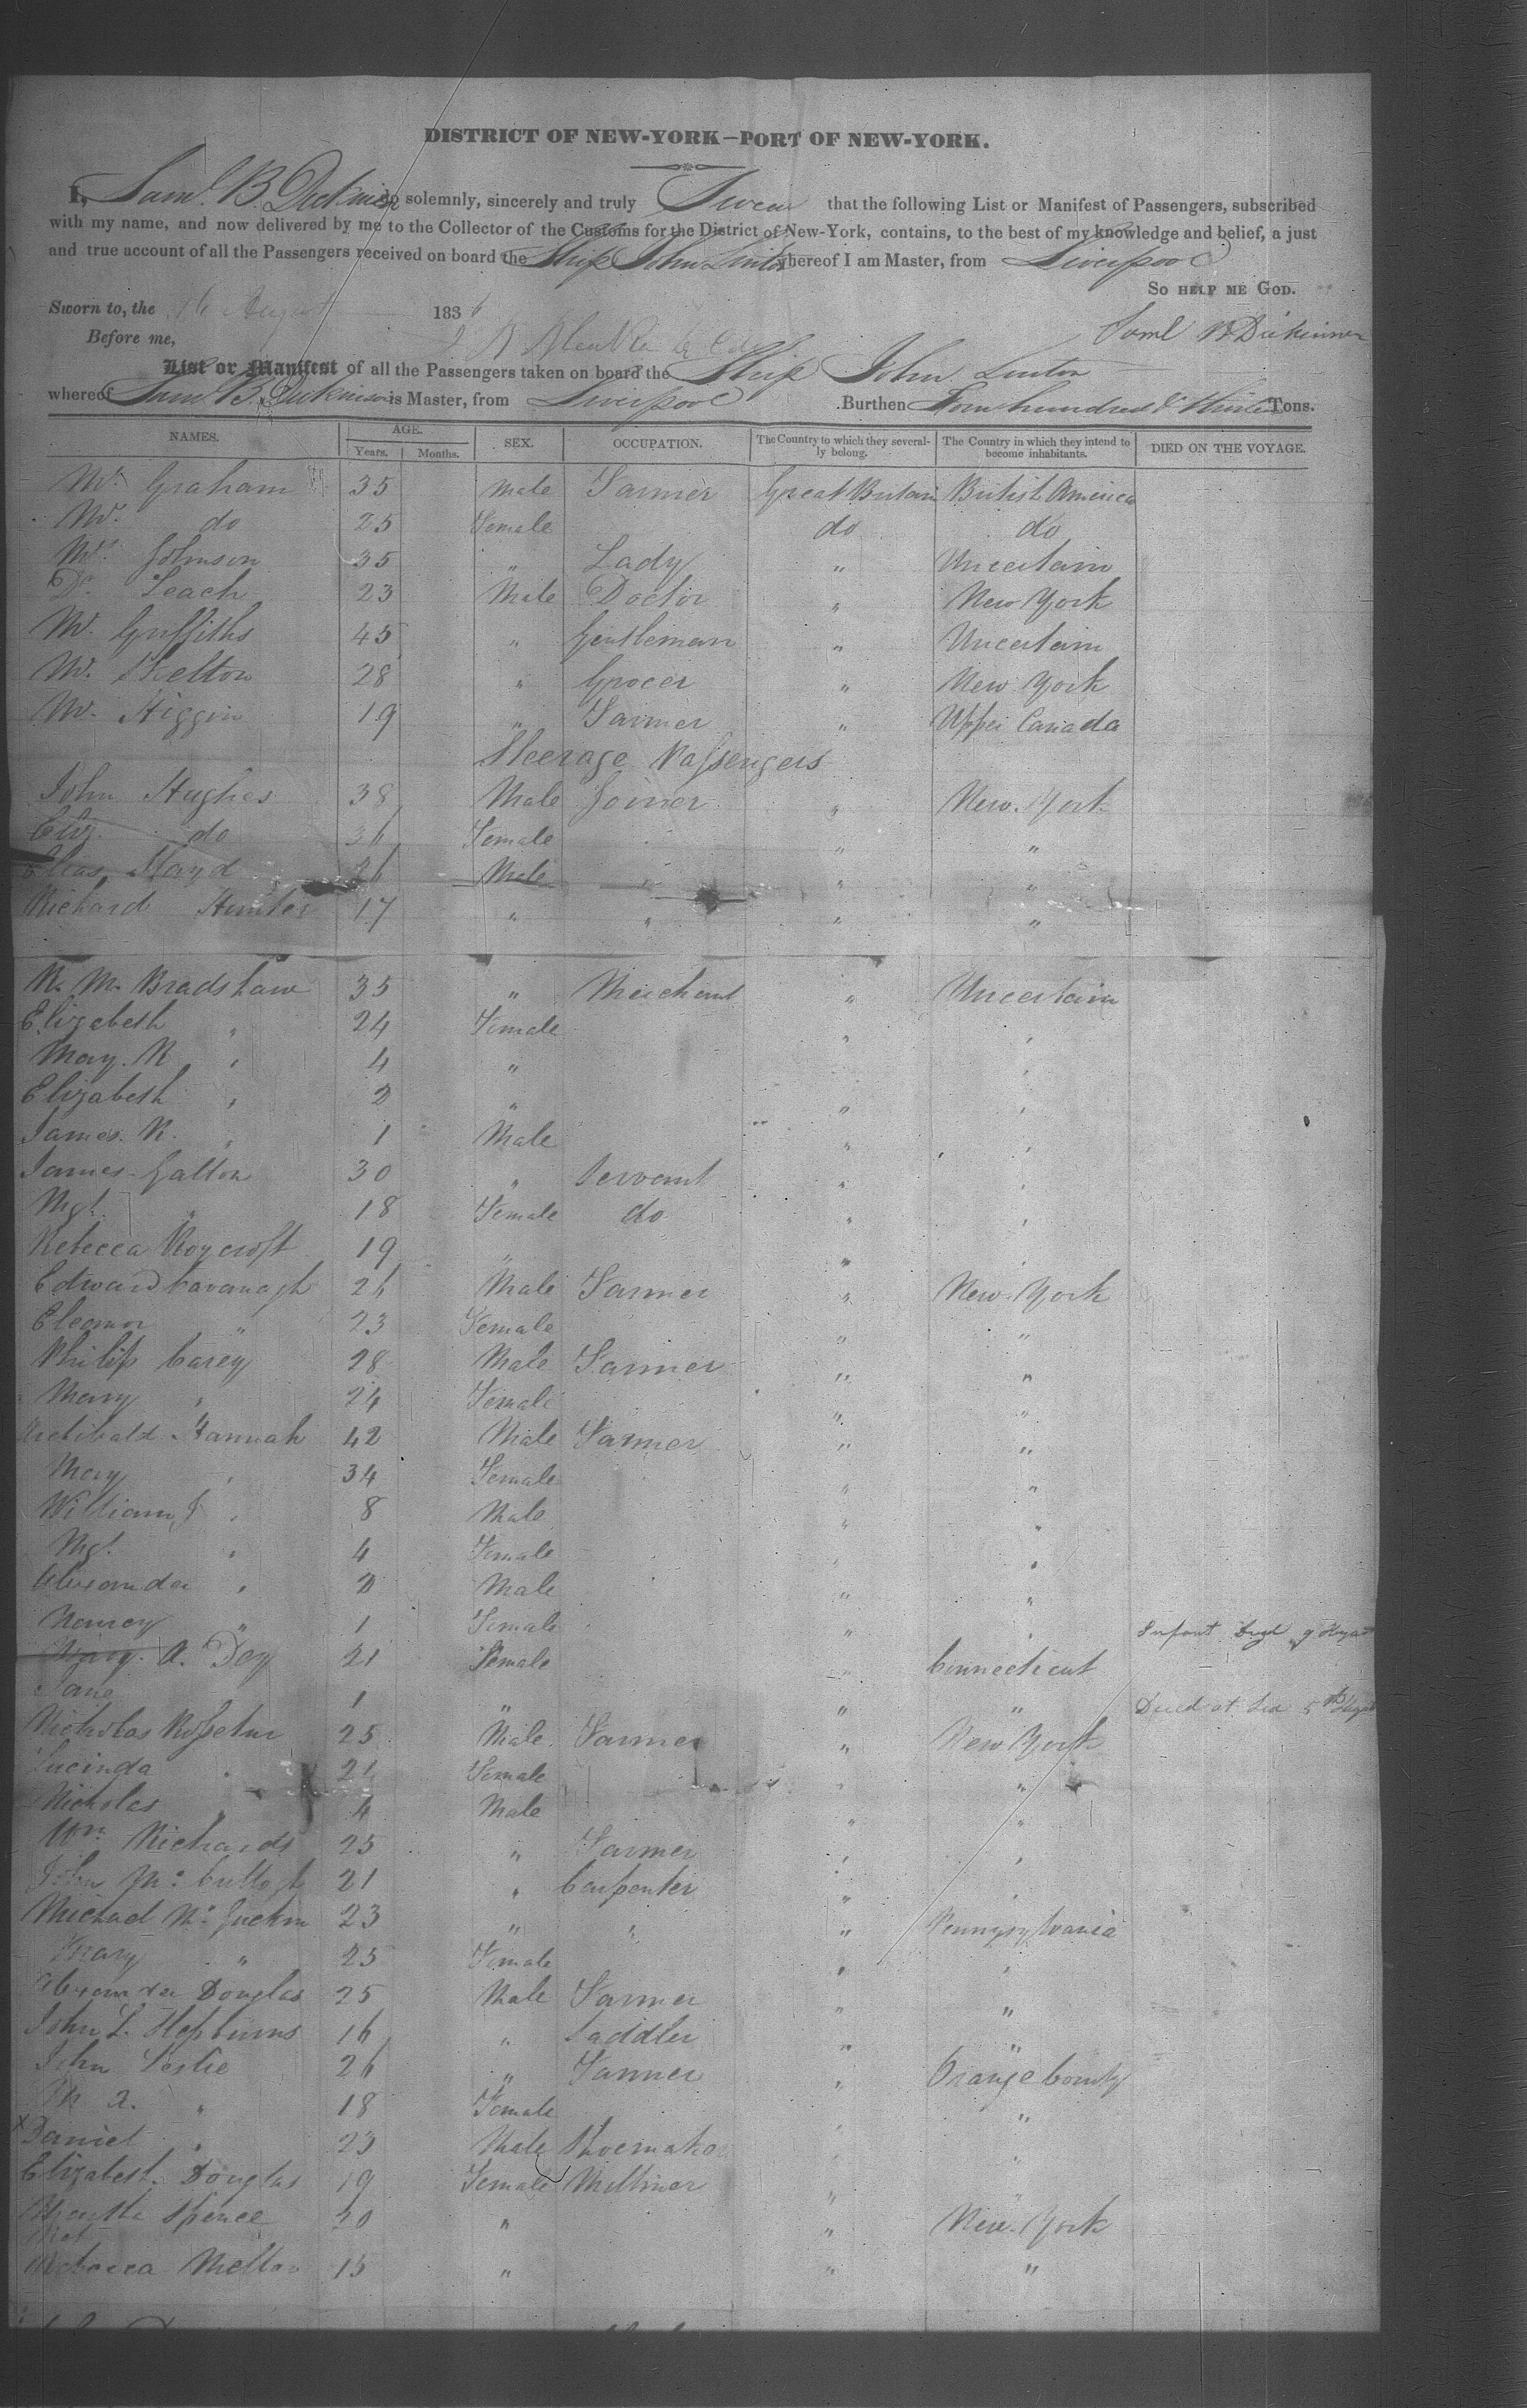 DISTRICT OF NEW-YORK—PORT OF NEW-YORK.
I, Saml. B. Dickinson do solemnly, sincerely and truly Swear that the following List or Manifest of Passengers, subscribed
with my name, and now delivered by me to the Collector of the Customs for the District of New-York, contains, to the best of my knowledge and belief, a just
and true account of all the Passengers received on board the Ship John Linton whereof I am Master, from Liverpool
So HELP ME GOD.
Sworn to, the 16 August 1836
Saml B Dickinson
Before me,
List or Manifest of all the Passengers taken on board the Ship John Linton
whereof Saml. B. Dickinson is Master, from Liverpool Burthen Four hundred & Tons.
NAMES. AGE. Years. Months. SEX. OCCUPATION. The Country to which they severally belong. The Country in which they intend to become inhabitants. DIED ON THE VOYAGE.
Mr. Graham 35 Male Farmer Great Britain British America
do 25 Female do do
Mrs. Johnson 35 " Lady " Uncertain
Dr. Leach 23 Male Doctor " New York
Mr. Griffiths 45 " Gentleman " Uncertain
Mr. Skelton 28 " Grocer " New York
Mr. Higgin 19 " Farmer " Upper Canada
Steerage Passengers
John Hughes 38 Male Joiner " New York
Eliz. do 36 Female " "
26 Male " " "
Richard Hunter 17 " " " "
R. M. Bradshaw 35 " Merchant " Uncertain
Elizabeth " 24 Female " "
Mary. R " 4 " "
Elizabeth " 2 " " "
James. R. " 1 Male " "
James Galton 30 " Servant " "
Mgt. " 18 Female do " "
Rebecca Roycroft 19 " " "
Edward Cavanagh 26 Male Farmer " New York
Eleanor " 23 Female " "
Philip Carey 28 Male Farmer " "
Mary " 24 Female " "
Archibald Hannah 42 Male Farmer " "
Mary " 34 Female " "
William J " 8 Male " "
Mgt. " 4 Female " "
Alexander " 2 Male " "
Nancy " 1 Female " " Infant
Mary. A. Day 21 Female " Connecticut
Jane 1 " " " Died at Sea 5th
Nicholas 25 Male Farmer " New York
Lucinda " 21 Female " "
Nicholas " 4 Male " "
Wm. Richards 25 " Farmer " "
John Mc 21 " Carpenter " "
Michael Mc 23 " " " Pennsylvania
Mary " 25 Female " "
Alexander Douglas 25 Male Farmer " "
John L. Hepburns 16 " Saddler " "
John Leslie 26 " Farmer " Orange County
" 18 Female " "
Daniel " 23 Male Shoemaker " "
Elizabeth Douglas 19 Female Milliner " "
Spence 20 " " New York
Rebecca 15 " " "